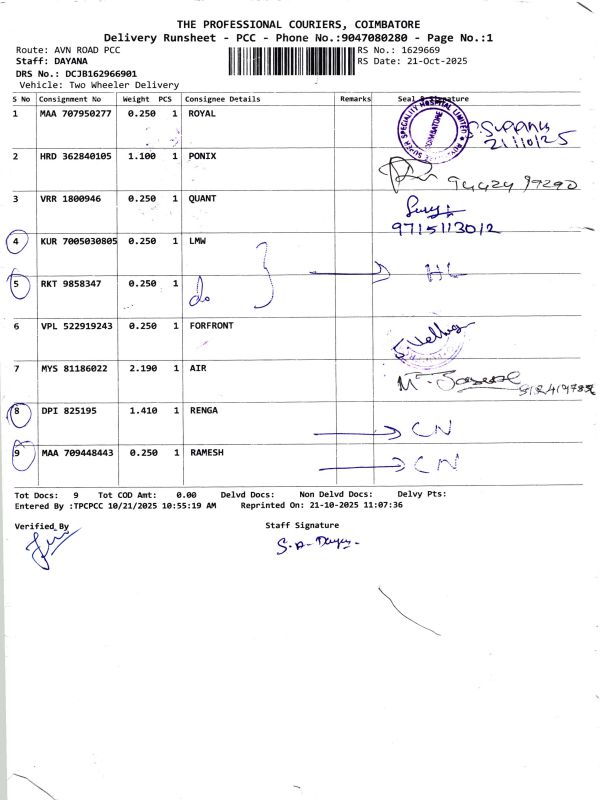 THE PROFESSIONAL COURIERS, COIMBATORE
Delivery Runsheet - PCC - Phone No.:9047080280 - Page No.:1
Route: AVN ROAD PCC RS No.: 1629669
Staff: DAYANA RS Date: 21-Oct-2025
DRS No.: DCJB162966901
Vehicle: Two Wheeler Delivery
S No Consignment No Weight PCS Consignee Details Remarks Seal & Signature
1 MAA 707950277 0.250 1 ROYAL
SUPER SPECIALITY HOSPITAL LIMITED COIMBATORE
21/10/25
2 HRD 362840105 1.100 1 PONIX
94424 99290
3 VRR 1800946 0.250 1 QUANT
9715113012
4 KUR 7005030805 0.250 1 LMW
HL
5 RKT 9858347 0.250 1 do
6 VPL 522919243 0.250 1 FORFRONT
7 MYS 81186022 2.190 1 AIR
8 DPI 825195 1.410 1 RENGA
CN
9 MAA 709448443 0.250 1 RAMESH
CN
Tot Docs: 9 Tot COD Amt: 0.00 Delvd Docs: Non Delvd Docs: Delvy Pts:
Entered By :TPCPCC 10/21/2025 10:55:19 AM Reprinted On: 21-10-2025 11:07:36
Verified By Staff Signature